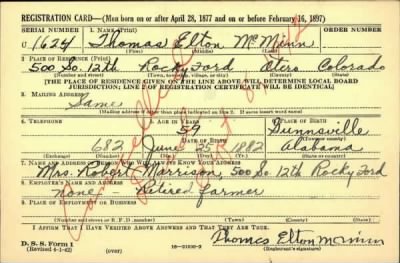 REGISTRATION CARD—(Men born on or after April 28, 1877 and on or before February 16, 1897)
SERIAL NUMBER 1. NAME (Print) ORDER NUMBER
U 1624 Thomas Elton McMinn
(First) (Middle) (Last)
2. PLACE OF RESIDENCE (Print)
500 So. 12th Rocky Ford Otero Colorado
(Number and street) (Town, township, village, or city) (County) (State)
[THE PLACE OF RESIDENCE GIVEN ON THE LINE ABOVE WILL DETERMINE LOCAL BOARD
JURISDICTION; LINE 2 OF REGISTRATION CERTIFICATE WILL BE IDENTICAL]
3. MAILING ADDRESS
Same
[Mailing address if other than place indicated on line 2. If same insert word same]
4. TELEPHONE 5. AGE IN YEARS 6. PLACE OF BIRTH
59 Gunnsville
DATE OF BIRTH (Town or county)
682 June 25 1882 Alabama
(Exchange) (Number) (Mo.) (Day) (Yr.) (State or country)
7. NAME AND ADDRESS OF PERSON WHO WILL ALWAYS KNOW YOUR ADDRESS
Mrs. Robert Marrison, 500 So 12th Rocky Ford
8. EMPLOYER'S NAME AND ADDRESS
None - Retired farmer
9. PLACE OF EMPLOYMENT OR BUSINESS
(Number and street or R. F. D. number) (Town) (County) (State)
I AFFIRM THAT I HAVE VERIFIED ABOVE ANSWERS AND THAT THEY ARE TRUE.
D. S. S. Form 1
(Revised 4-1-42) (over) Thomas Elton McMinn
(Registrant's signature)
Cancelled